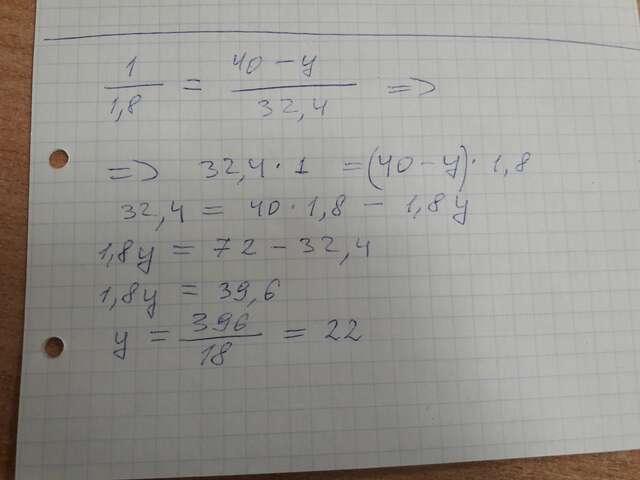 1/1,8 = 40-y/32,4 =>
=> 32,4·1 =(40-y)·1,8
32,4 = 40·1,8 - 1,8y
1,8y = 72 - 32,4
1,8y = 39,6
y = 396/18 = 22